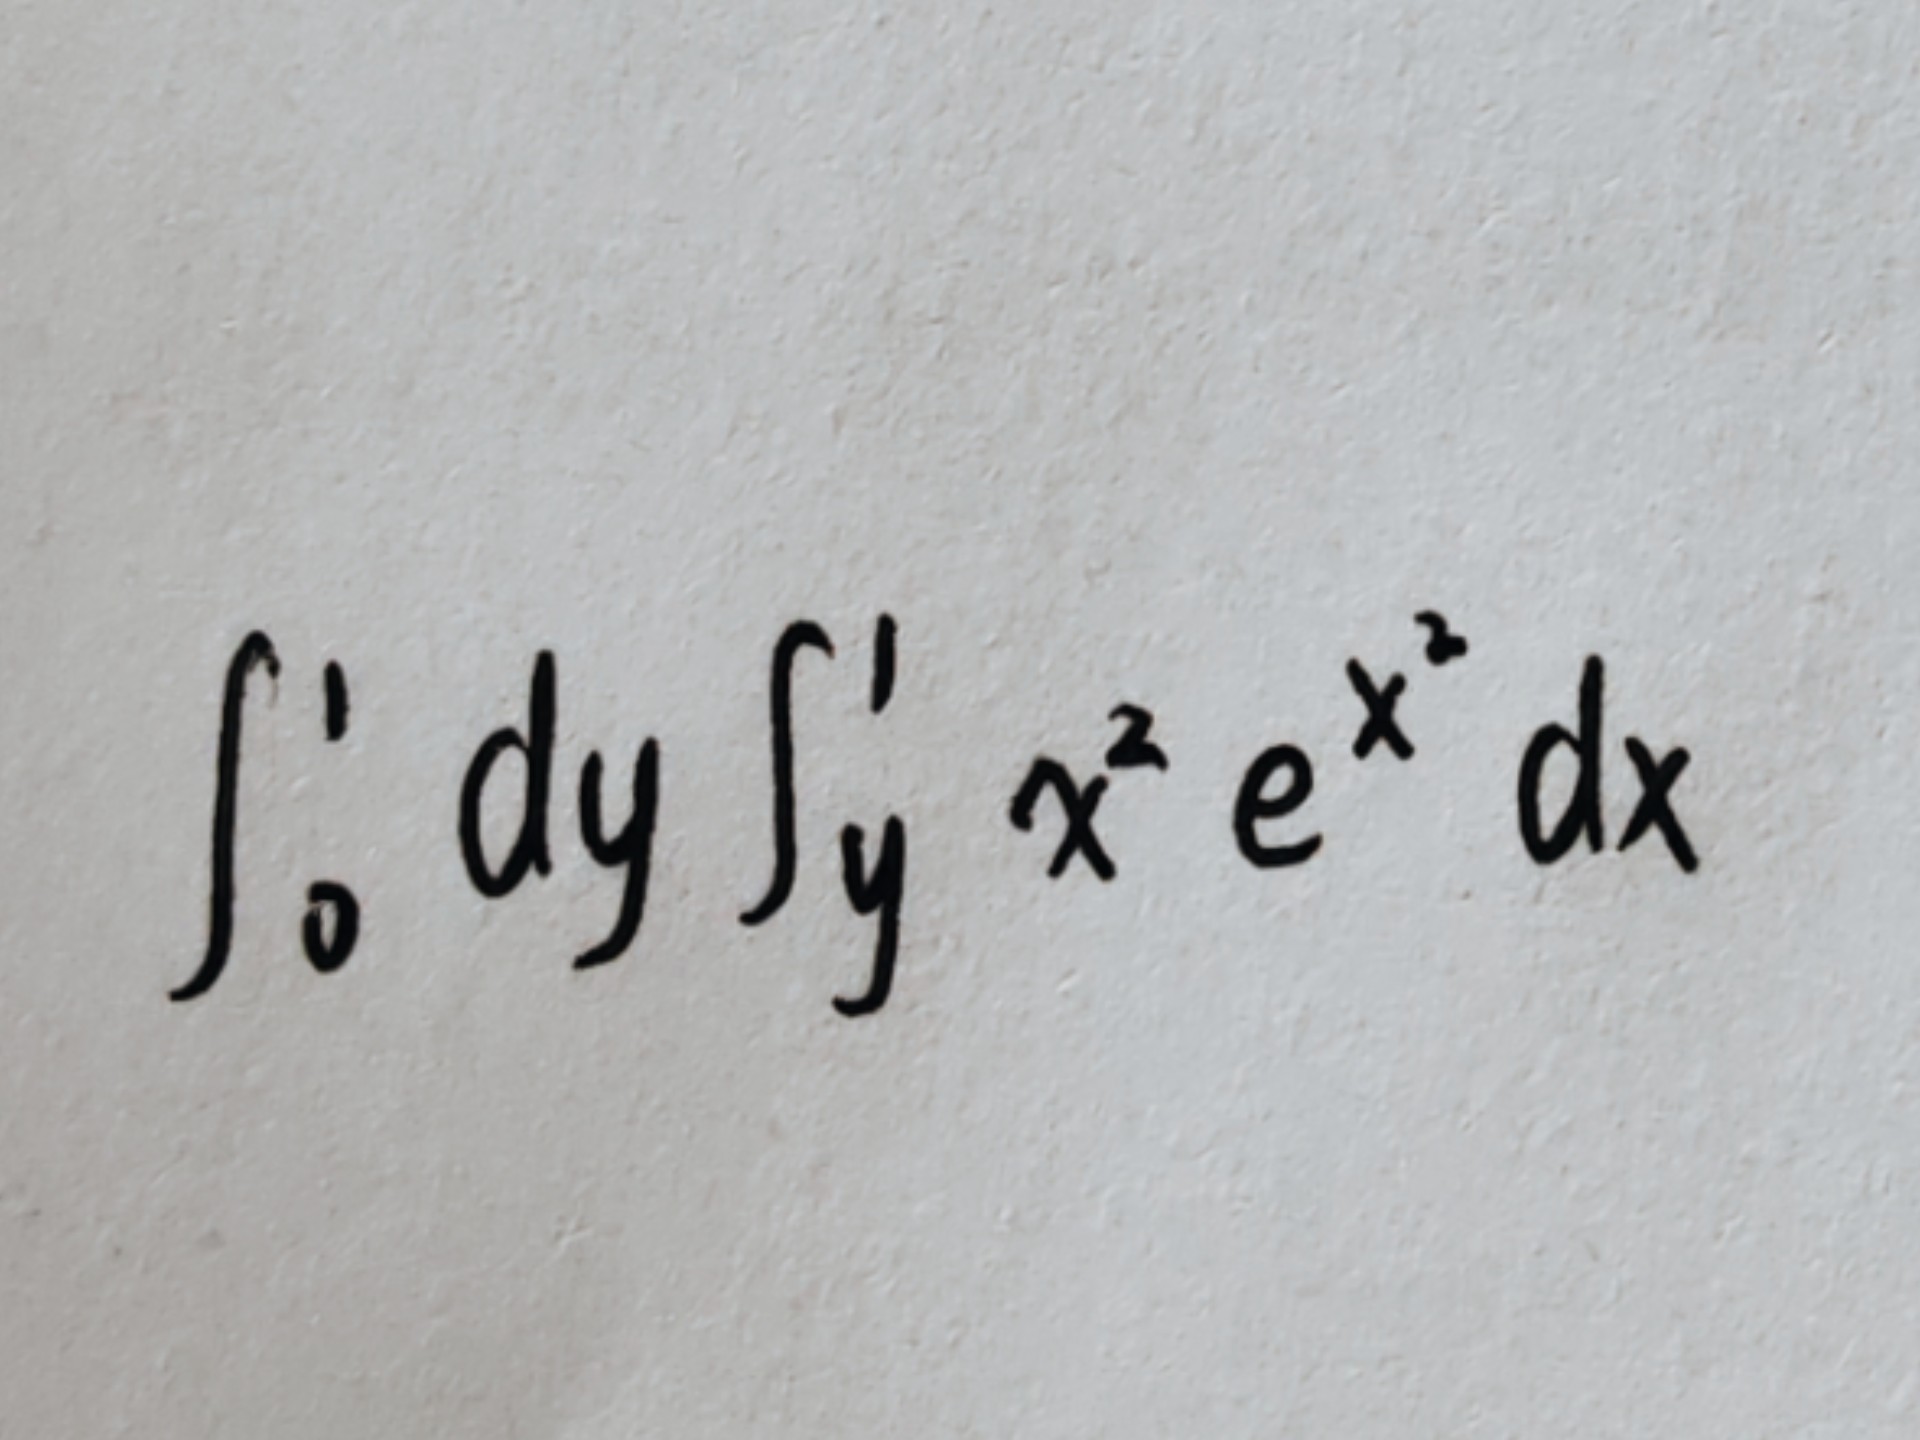 ∫₀¹ dy ∫_y^1 x² e^{x²} dx